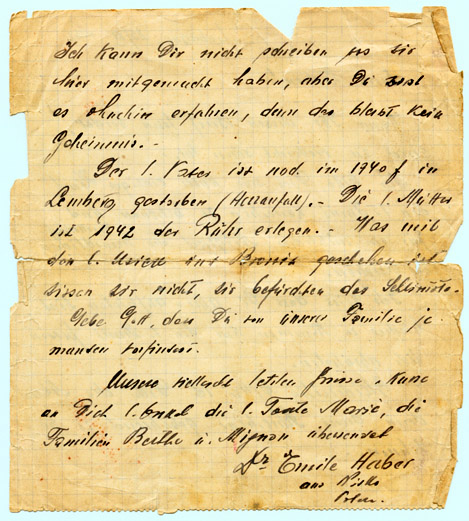 Ich kann Dir nicht schreiben was wir
hier mitgemacht haben, aber Du wirst
es ohnehin erfahren, denn das bleibt kein
Geheimnis. –
Der l. Vater ist noch im 1940 J in
Lemberg gestorben (Herzanfall). – Die l. Mutter
ist 1942 der Rühr erlegen. – Was mit
den l. und Bronia geschehen ist
wissen wir nicht, wir befürchten das Schlimmste.
Gebe Gott, dass Du von unserer Familie je-
manden vorfindest.
Unsere vielleicht letzten Grüsse
an Dich l. Onkel die l. Tante Marie, die
Familien Berthe u. Mignon übersendet
Dr Emile Haber
aus Nisko
Polen.